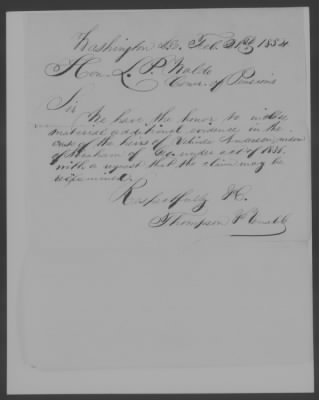 Washington D.C. Feb. 21st 1854
Hon. L. P. Waldo
Comr. of Pensions
Sir
We have the honor to inclose
material additional evidence in the
case of the heirs of Anderson, widow
of Abraham of under act of 1838.
with a request that the claim may be
reexamined.
Respectfully &c.
Thompson &